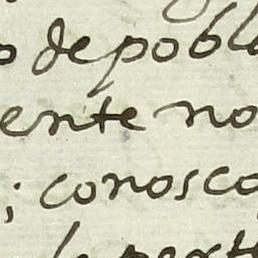 o de pobla
ente no
; conosco